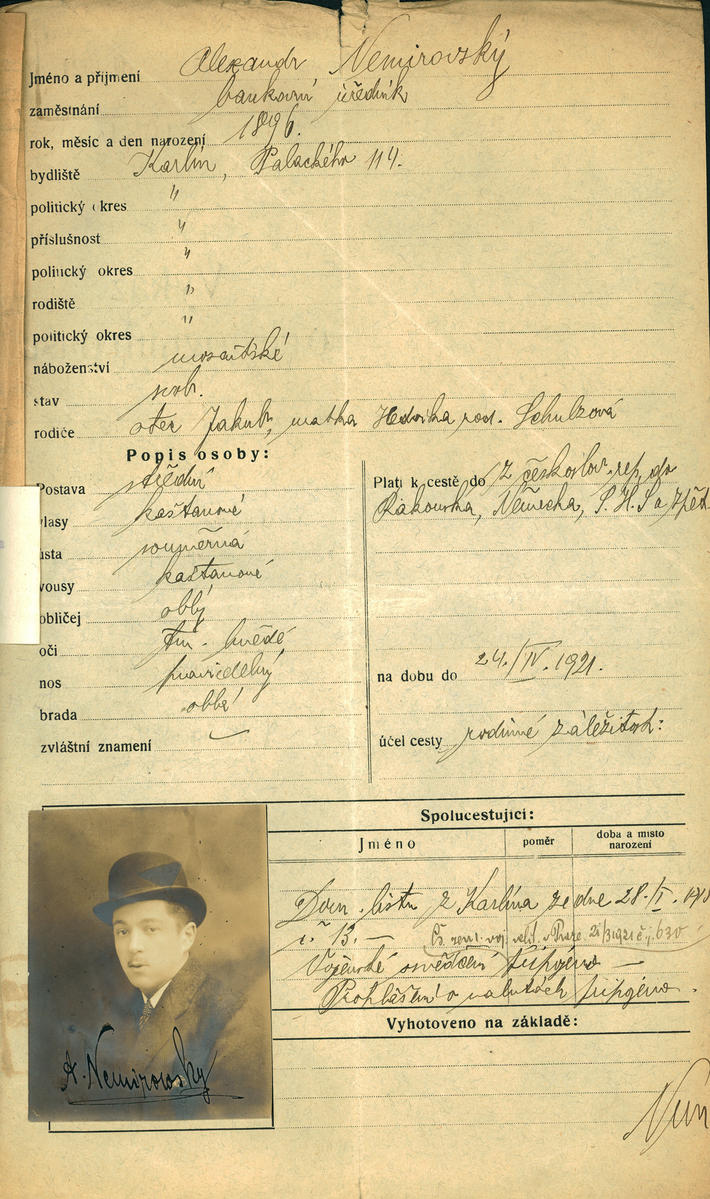 Jméno a příjmení Alexandr Nemirovský
zaměstnání bankovní úředník
rok, měsíc a den narození 1896.
bydliště Karlín, Palackého 114.
politický okres "
příslušnost "
politický okres "
rodiště "
politický okres "
náboženství mosaitské
stav svob.
rodiče otec Jakub, matka Hedvika roz. Schulzová
Popis osoby:
Postava střední
vlasy kaštanové
ústa souměrná
vousy kaštanové
obličej oblý
oči tm. hnědé
nos pravidelný
brada oblá
zvláštní znamení
Platí k cestě do z českoslov. rep. do
Rakouska, Německa, S.H.S a zpět
na dobu do 24./IV. 1921.
účel cesty rodinné záležitosti:
Spolucestující:
Jméno poměr doba a místo narození
Dom. listu z Karlína ze dne 28./I.
č. 13. —
Čs. zem. voj. velit. v Praze 21/3 1921 č.j. 630
Vojenské osvědčení připojeno —
Prohlášení o valutách připojeno.
Vyhotoveno na základě:
A. Nemirowsky